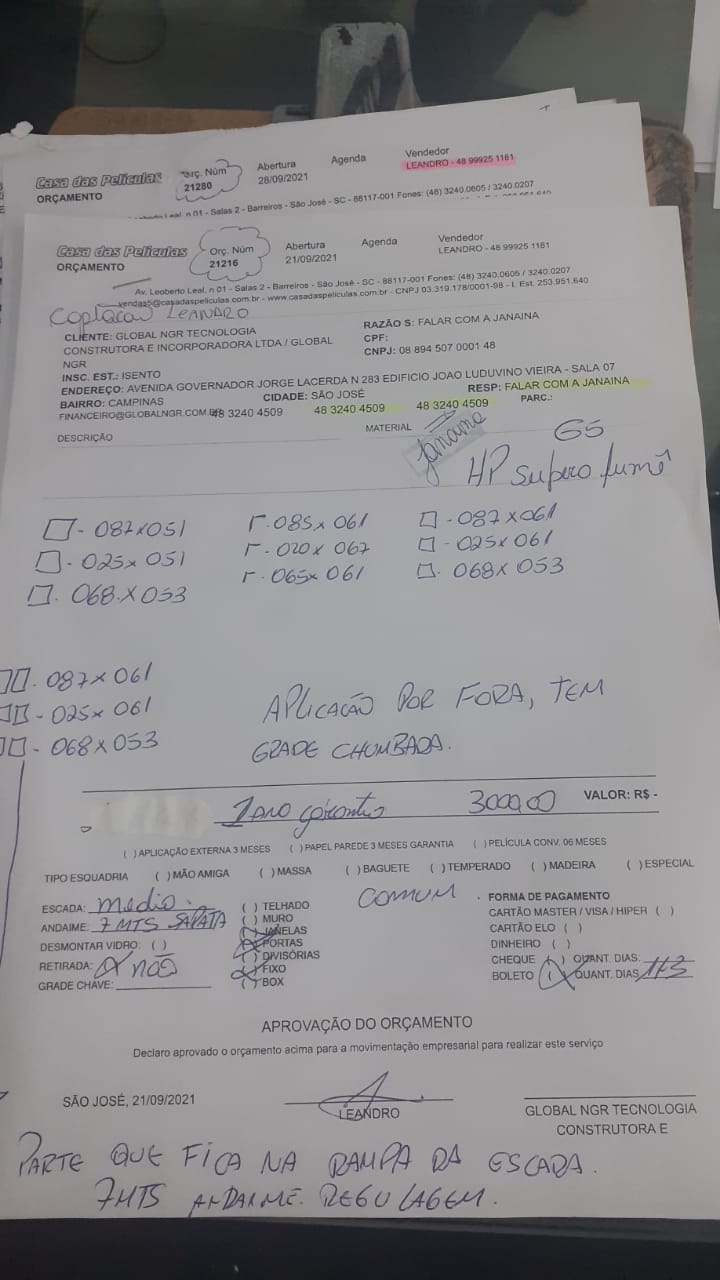 Casa das Películas
ORÇAMENTO
Orç. Núm
21280
Abertura
28/09/2021
Agenda
Vendedor
LEANDRO - 48 99925 1181
Leal, n 01 - Salas 2 - Barreiros - São José - SC - 88117-001 Fones: (48) 3240.0605 / 3240.0207
Casa das Películas
ORÇAMENTO
Orç. Núm
21216
Abertura
21/09/2021
Agenda
Vendedor
LEANDRO - 48 99925 1181
Av. Leoberto Leal, n 01 - Salas 2 - Barreiros - São José - SC - 88117-001 Fones: (48) 3240.0605 / 3240.0207
vendas5@casadaspeliculas.com.br - www.casadaspeliculas.com.br - CNPJ 03.319.178/0001-98 - I. Est. 253.951.640
LEANDRO
CLIENTE: GLOBAL NGR TECNOLOGIA
CONSTRUTORA E INCORPORADORA LTDA / GLOBAL
NGR
RAZÃO S: FALAR COM A JANAINA
CPF:
CNPJ: 08 894 507 0001 48
INSC. EST.: ISENTO
ENDEREÇO: AVENIDA GOVERNADOR JORGE LACERDA N 283 EDIFICIO JOAO LUDUVINO VIEIRA - SALA 07
BAIRRO: CAMPINAS CIDADE: SÃO JOSÉ RESP: FALAR COM A JANAINA
FINANCEIRO@GLOBALNGR.COM.BR 48 3240 4509 48 3240 4509 48 3240 4509 PARC.:
DESCRIÇÃO MATERIAL
Janaina
G5
HP supero fumê
- 087x051 - 085x061 - 087x061
- 025x051 - 020x067 - 025x061
- 068x053 - 065x061 - 068x053
- 087x061
- 025x061
- 068x053
APLICAÇÃO POR FORA, TEM
GRADE CHUMBADA.
1 ano garantia 3000,00 VALOR: R$ -
( ) APLICAÇÃO EXTERNA 3 MESES ( ) PAPEL PAREDE 3 MESES GARANTIA ( ) PELÍCULA CONV. 06 MESES
TIPO ESQUADRIA ( ) MÃO AMIGA ( ) MASSA ( ) BAGUETE ( ) TEMPERADO ( ) MADEIRA ( ) ESPECIAL
COMUM
ESCADA: medio.
ANDAIME: 7 MTS SAPATA
DESMONTAR VIDRO: ( )
RETIRADA: (X) não
GRADE CHAVE:
( ) TELHADO
( ) MURO
(X) JANELAS
(X) PORTAS
( ) DIVISÓRIAS
(X) FIXO
( ) BOX
FORMA DE PAGAMENTO
CARTÃO MASTER / VISA / HIPER ( )
CARTÃO ELO ( )
DINHEIRO ( )
CHEQUE ( ) QUANT. DIAS:
BOLETO (X) QUANT. DIAS
APROVAÇÃO DO ORÇAMENTO
Declaro aprovado o orçamento acima para a movimentação empresarial para realizar este serviço
SÃO JOSÉ, 21/09/2021
LEANDRO
GLOBAL NGR TECNOLOGIA
CONSTRUTORA E
PARTE QUE FICA NA RAMPA DA ESCADA.
7MTS ANDAIME. REGULAGEM.